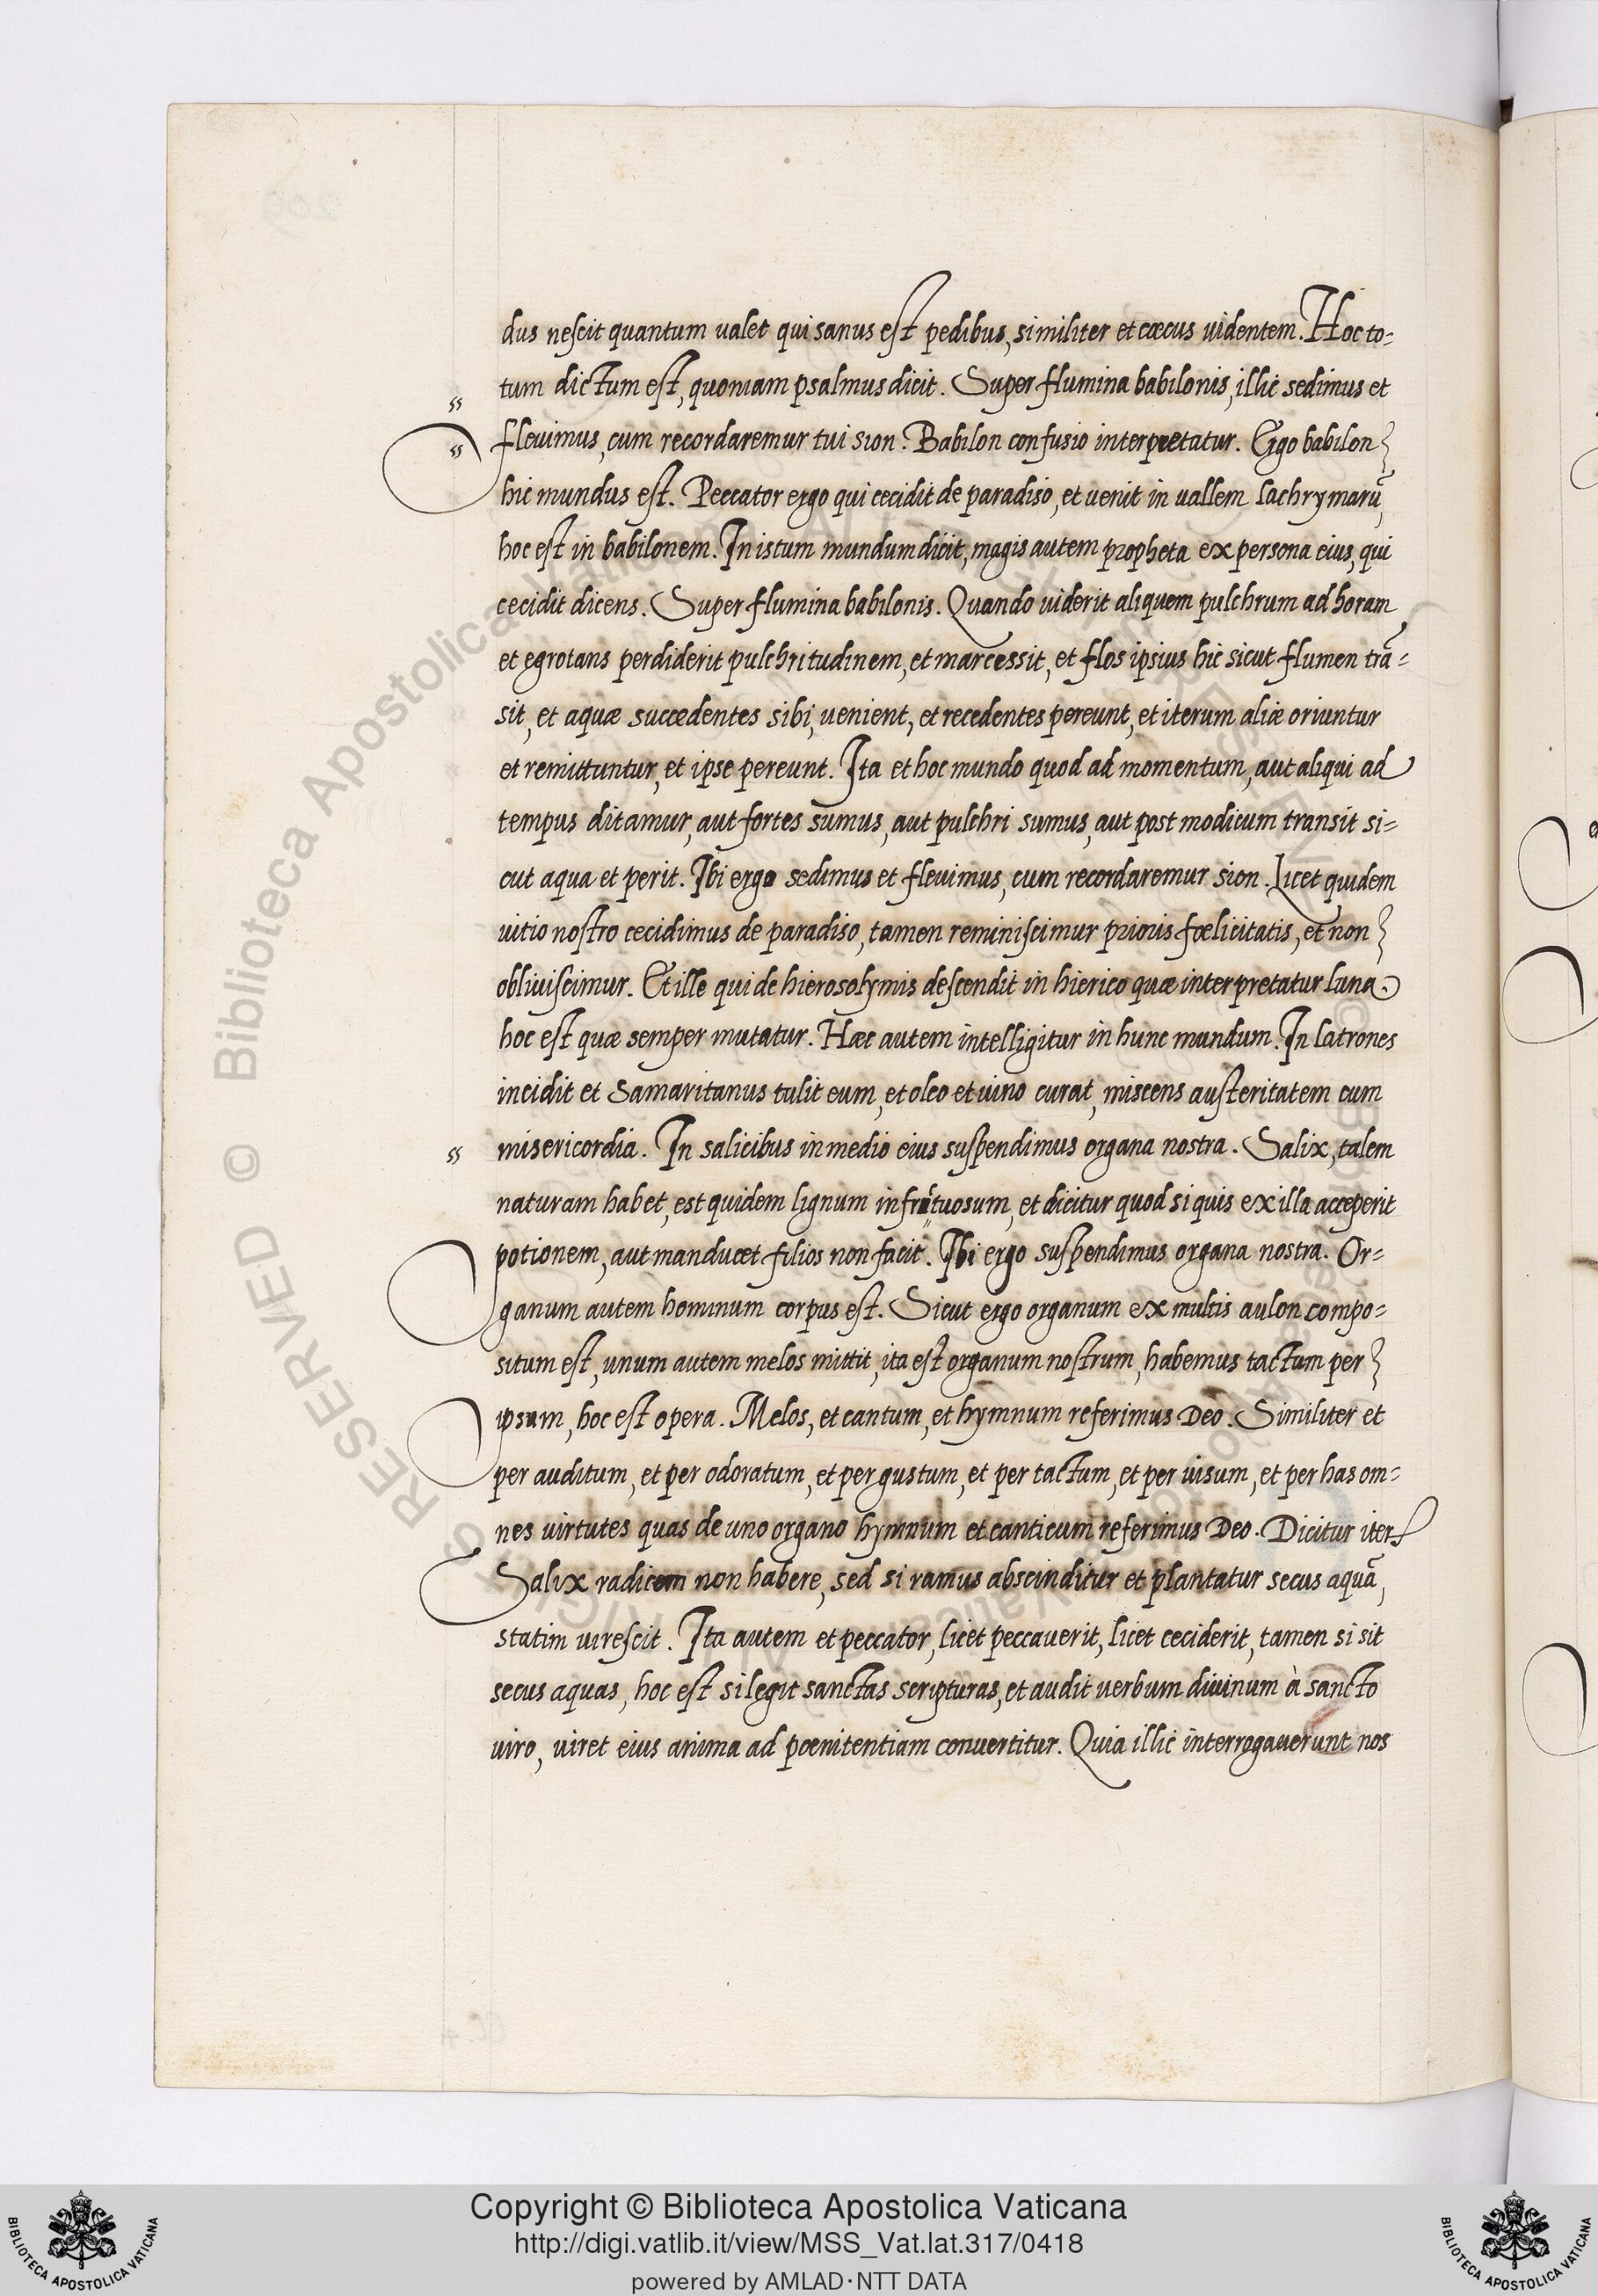 dus nescit quantum valet qui sanus est pedibus, similiter et cæcus videntem. Hoc to-
tum dictum est, quoniam psalmus dicit. Super flumina babilonis, illic sedimus et
flevimus, cum recordaremur tui sion. Babilon confusio interpretatur. Ergo babilon
hic mundus est. Peccator ergo qui cecidit de paradiso, et venit in vallem lachrymarū,
hoc est in babilonem. In istum mundum dicit, magis autem propheta ex persona eius, qui
cecidit dicens. Super flumina babilonis. Quando viderit aliquem pulchrum ad horam
et egrotans perdiderit pulchritudinem, et marcessit, et flos ipsius hic sicut flumen trā-
sit, et aquæ succedentes sibi, venient, et recedentes pereunt, et iterum aliæ oriuntur
et remittuntur, et ipse pereunt. Ita et hoc mundo quod ad momentum, aut aliqui ad
tempus ditamur, aut fortes sumus, aut pulchri sumus, aut post modicum transit si-
cut aqua et perit. Ibi ergo sedimus et flevimus, cum recordaremur sion. Licet quidem
vitio nostro cecidimus de paradiso, tamen reminiscimur prioris fœlicitatis, et non
obliviscimur. Et ille qui de hierosolymis descendit in hierico quæ interpretatur luna.
hoc est quæ semper mutatur. Hæc autem intelligitur in hunc mundum. In latrones
incidit et Samaritanus tulit eum, et oleo et vino curat, miscens austeritatem cum
misericordia. In salicibus in medio eius suspendimus organa nostra. Salix, talem
naturam habet, est quidem lignum infructuosum, et dicitur quod si quis ex illa acceperit
potionem, aut manducet filios non facit. Ibi ergo suspendimus organa nostra. Or-
ganum autem hominum corpus est. Sicut ergo organum ex multis aulon compo-
situm est, unum autem melos mittit, ita est organum nostrum, habemus tactum per
ipsum, hoc est opera. Melos, et cantum, et hymnum referimus Deo. Similiter et
per auditum, et per odoratum, et per gustum, et per tactum, et per visum, et per has om-
nes virtutes quas de uno organo hymnum et canticum referimus Deo. Dicitur iter
Salix radicem non habere, sed si ramus abscinditur et plantatur secus aquā,
statim virescit. Ita autem et peccator, licet peccaverit, licet ceciderit, tamen si sit
secus aquas, hoc est si legit sanctas scripturas, et audit verbum divinum à sancto
viro, viret eius anima ad pœnitentiam convertitur. Quia illic interrogaverunt nos
Copyright © Biblioteca Apostolica Vaticana
http://digi.vatlib.it/view/MSS_Vat.lat.317/0418
powered by AMLAD·NTT DATA